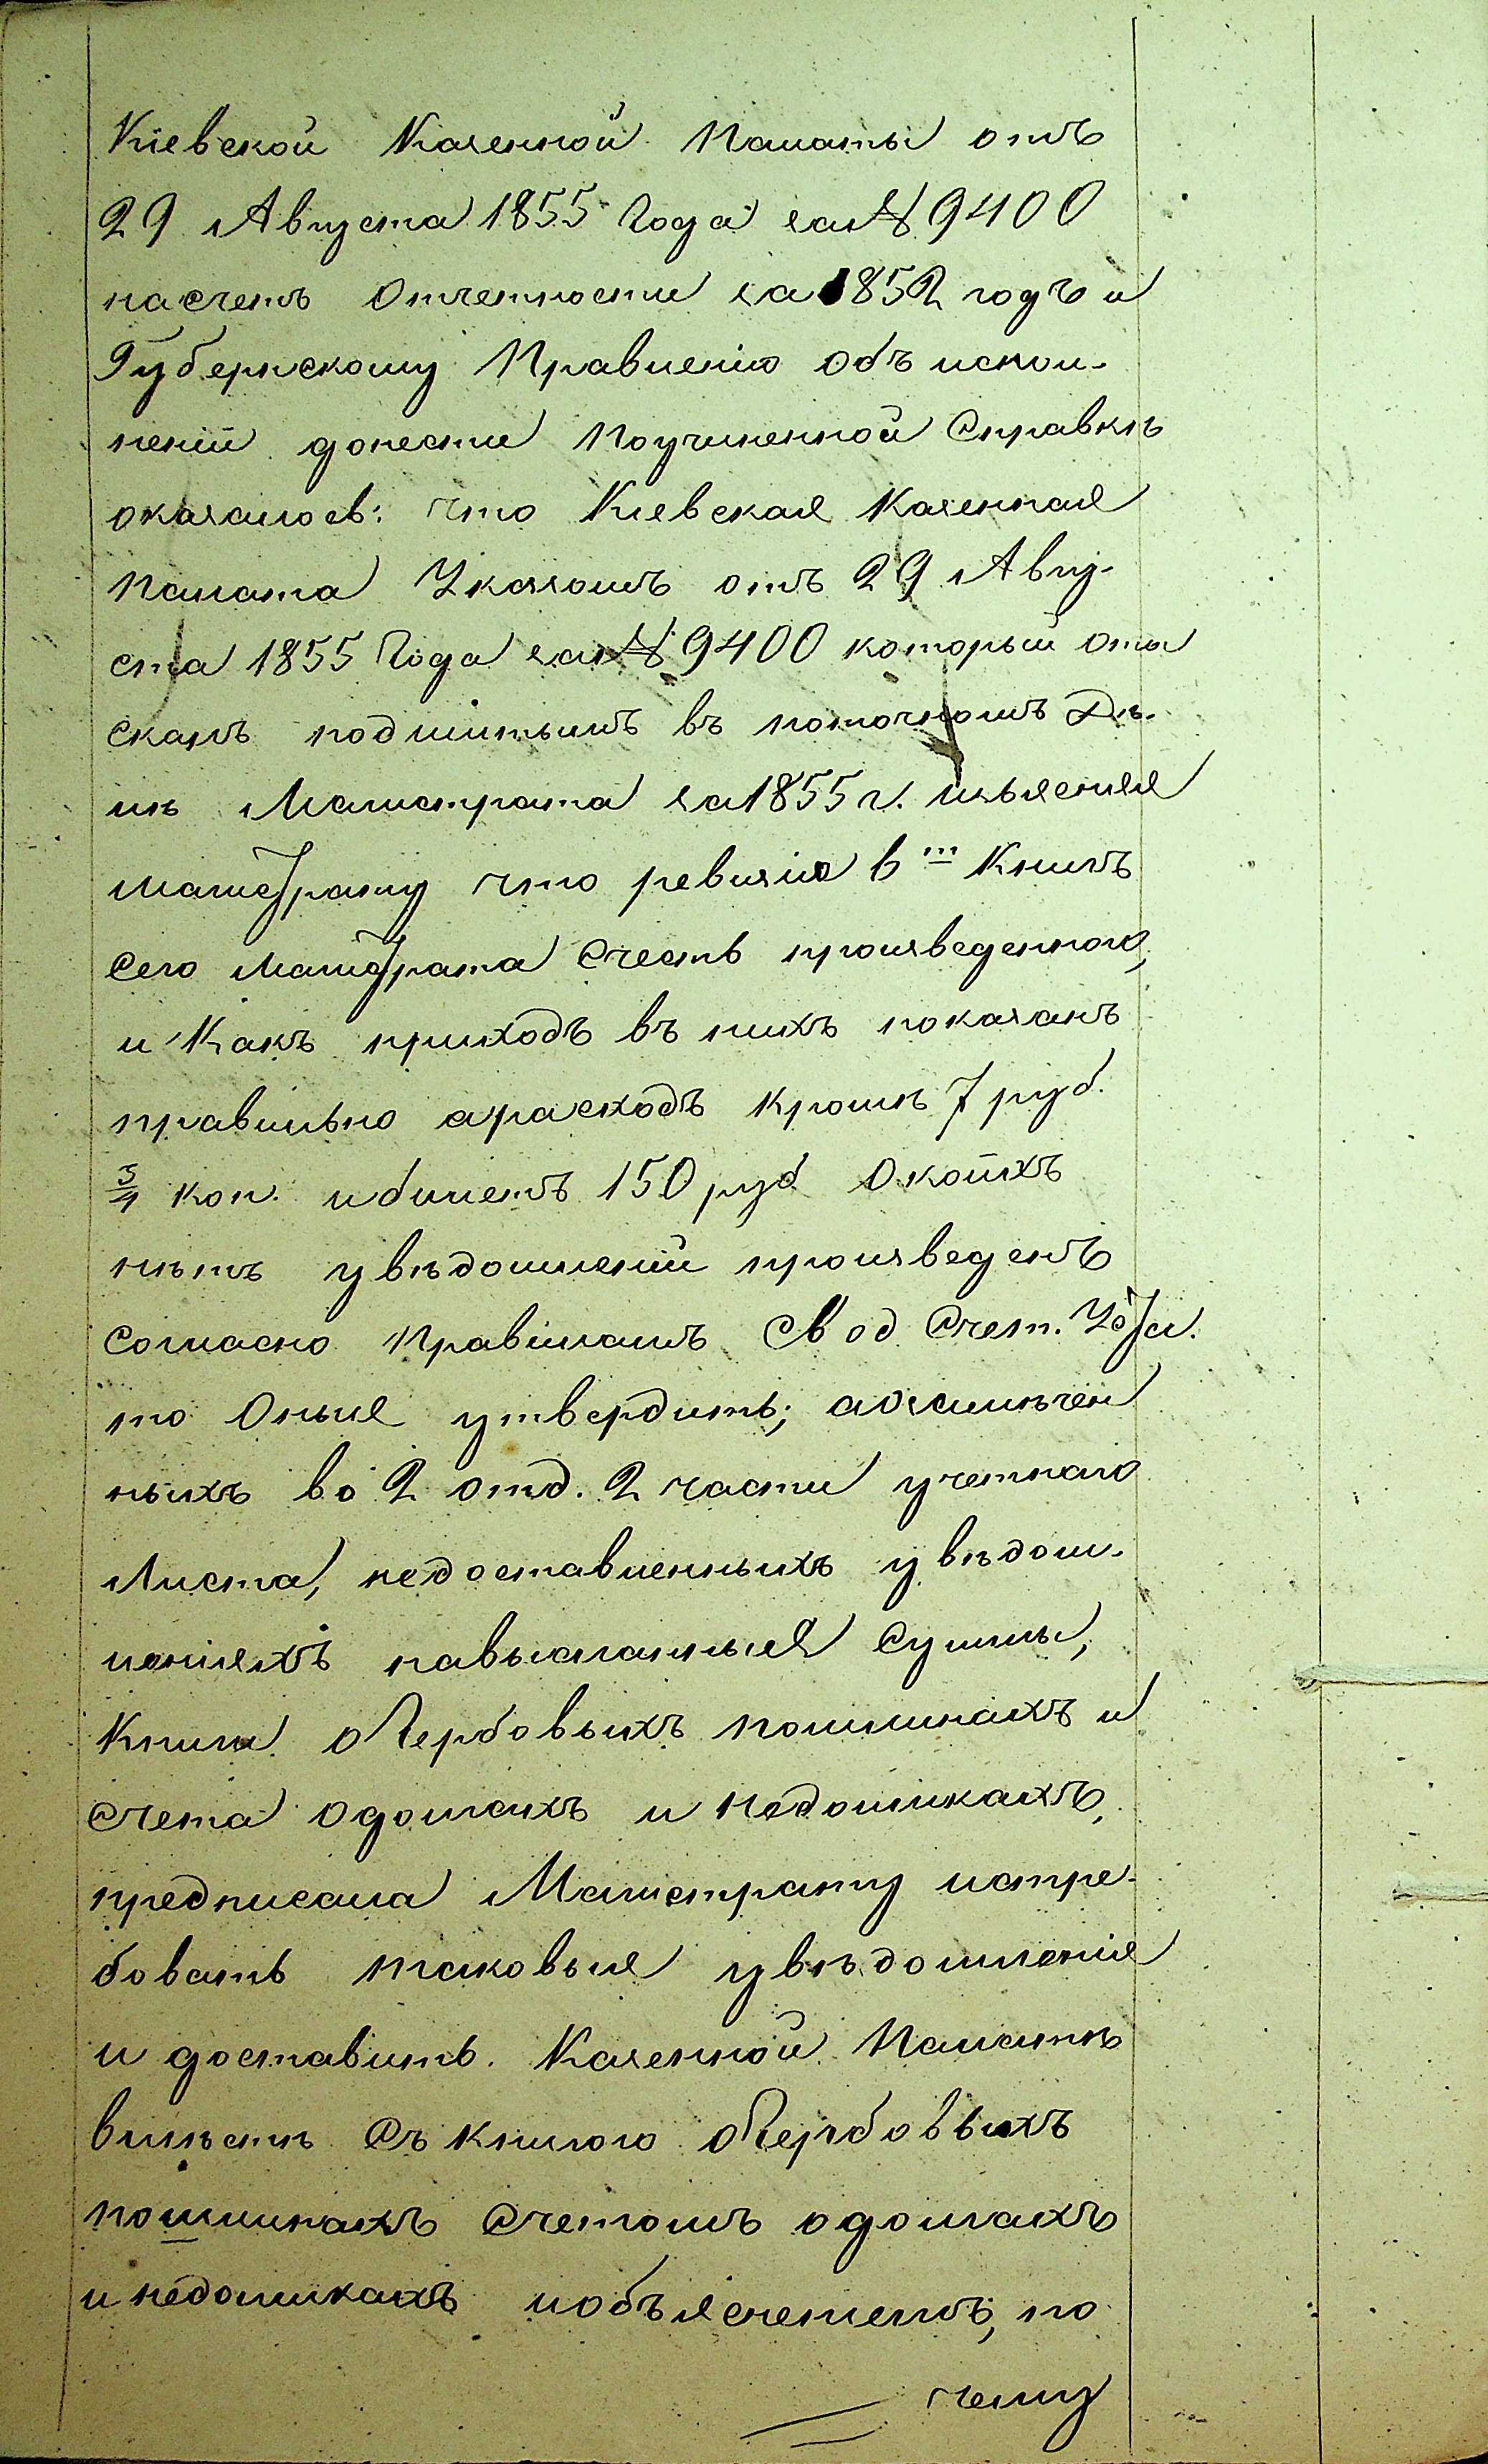 Кіевской Казенной Палаты отъ
29 Августа 1855 Года за № 9400
насчетъ Отчетности за 1852 годъ и
Губернскому Правленію объ испол-
неніи донести Поучиненной Справкѣ
оказалось: что Кіевская Казенная
Палата Указомъ отъ 29 Авгу-
ста 1855 Года за № 9400 который оты
сканъ подшитымъ въ поточномъ Дѣ-
лѣ Магистрата за 1855 г. изъясняя
магистрату что ревизія 6 Книгъ
сего магистрата Счетъ произведенного,
и Какъ приходъ въ нихъ показанъ
правильно а расходъ кромѣ 7 руб.
3/4 коп. и билетъ 150 руб О коихъ
нѣтъ увѣдомленій произведенъ
согласно Правиламъ Свод Счет. Уста.
то Оныя утвердить; а о замѣчен
ныхъ во 2 отд. 2 части учетнаго
Листа, недоставленныхъ увѣдом-
леніяхъ на высланныя Суммы,
Книга о Гербовыхъ пошлинахъ и
счета о долгахъ и недоимкахъ,
предписала Магистрату истре-
бовать таковыя увѣдомленія
и доставить Казенной Палатѣ
вмѣстѣ съ книгою о Гербовыхъ
пошлинахъ Счетомъ о долгахъ
и недоимкахъ и объясненіемъ, по
чему